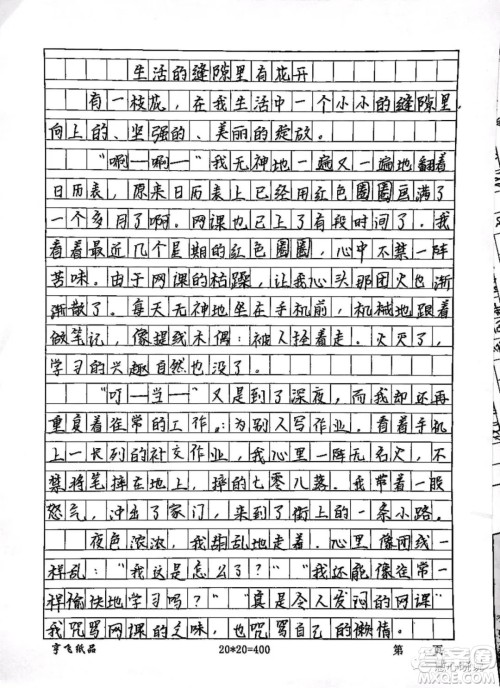 生活的缝隙里有花开
有一枝花,在我生活中一个小小的缝隙里,
向上的、坚强的、美丽的绽放。
“唰一唰一”我无神地一遍又一遍地翻着
日历表,原来日历表上已经用红色圈圈画满了
一个多月了啊。网课也上了有段时间了。我
看着最近几个星期的红色圈圈,心中不禁一阵
苦味。由于网课的枯躁,让我心头那团火也渐
渐散了。每天无神地坐在手机前,机械地跟着
做笔记,像提线木偶:被人拴着走。火灭了,
学习的兴趣自然也没了。
“叮一当一”又是到了深夜,而我却还再
重复着往常的工作。:为别人写作业。看着手机
上一长列的补交作业,我心里一阵无名火,不
禁将笔摔在地上,摔的七零八落。我带着一股
怒气,冲出了家门,来到了街上的一条小路。
夜色浓浓,我胡乱地走着。心里像团线一
样乱:“我这是怎么了?”“我还能像往常一
样愉快地学习吗?”“真是令人发闷的网课”
我咒骂网课的乏味,也咒骂自己的懒惰。
宇飞纸品 20*20=400 第 页